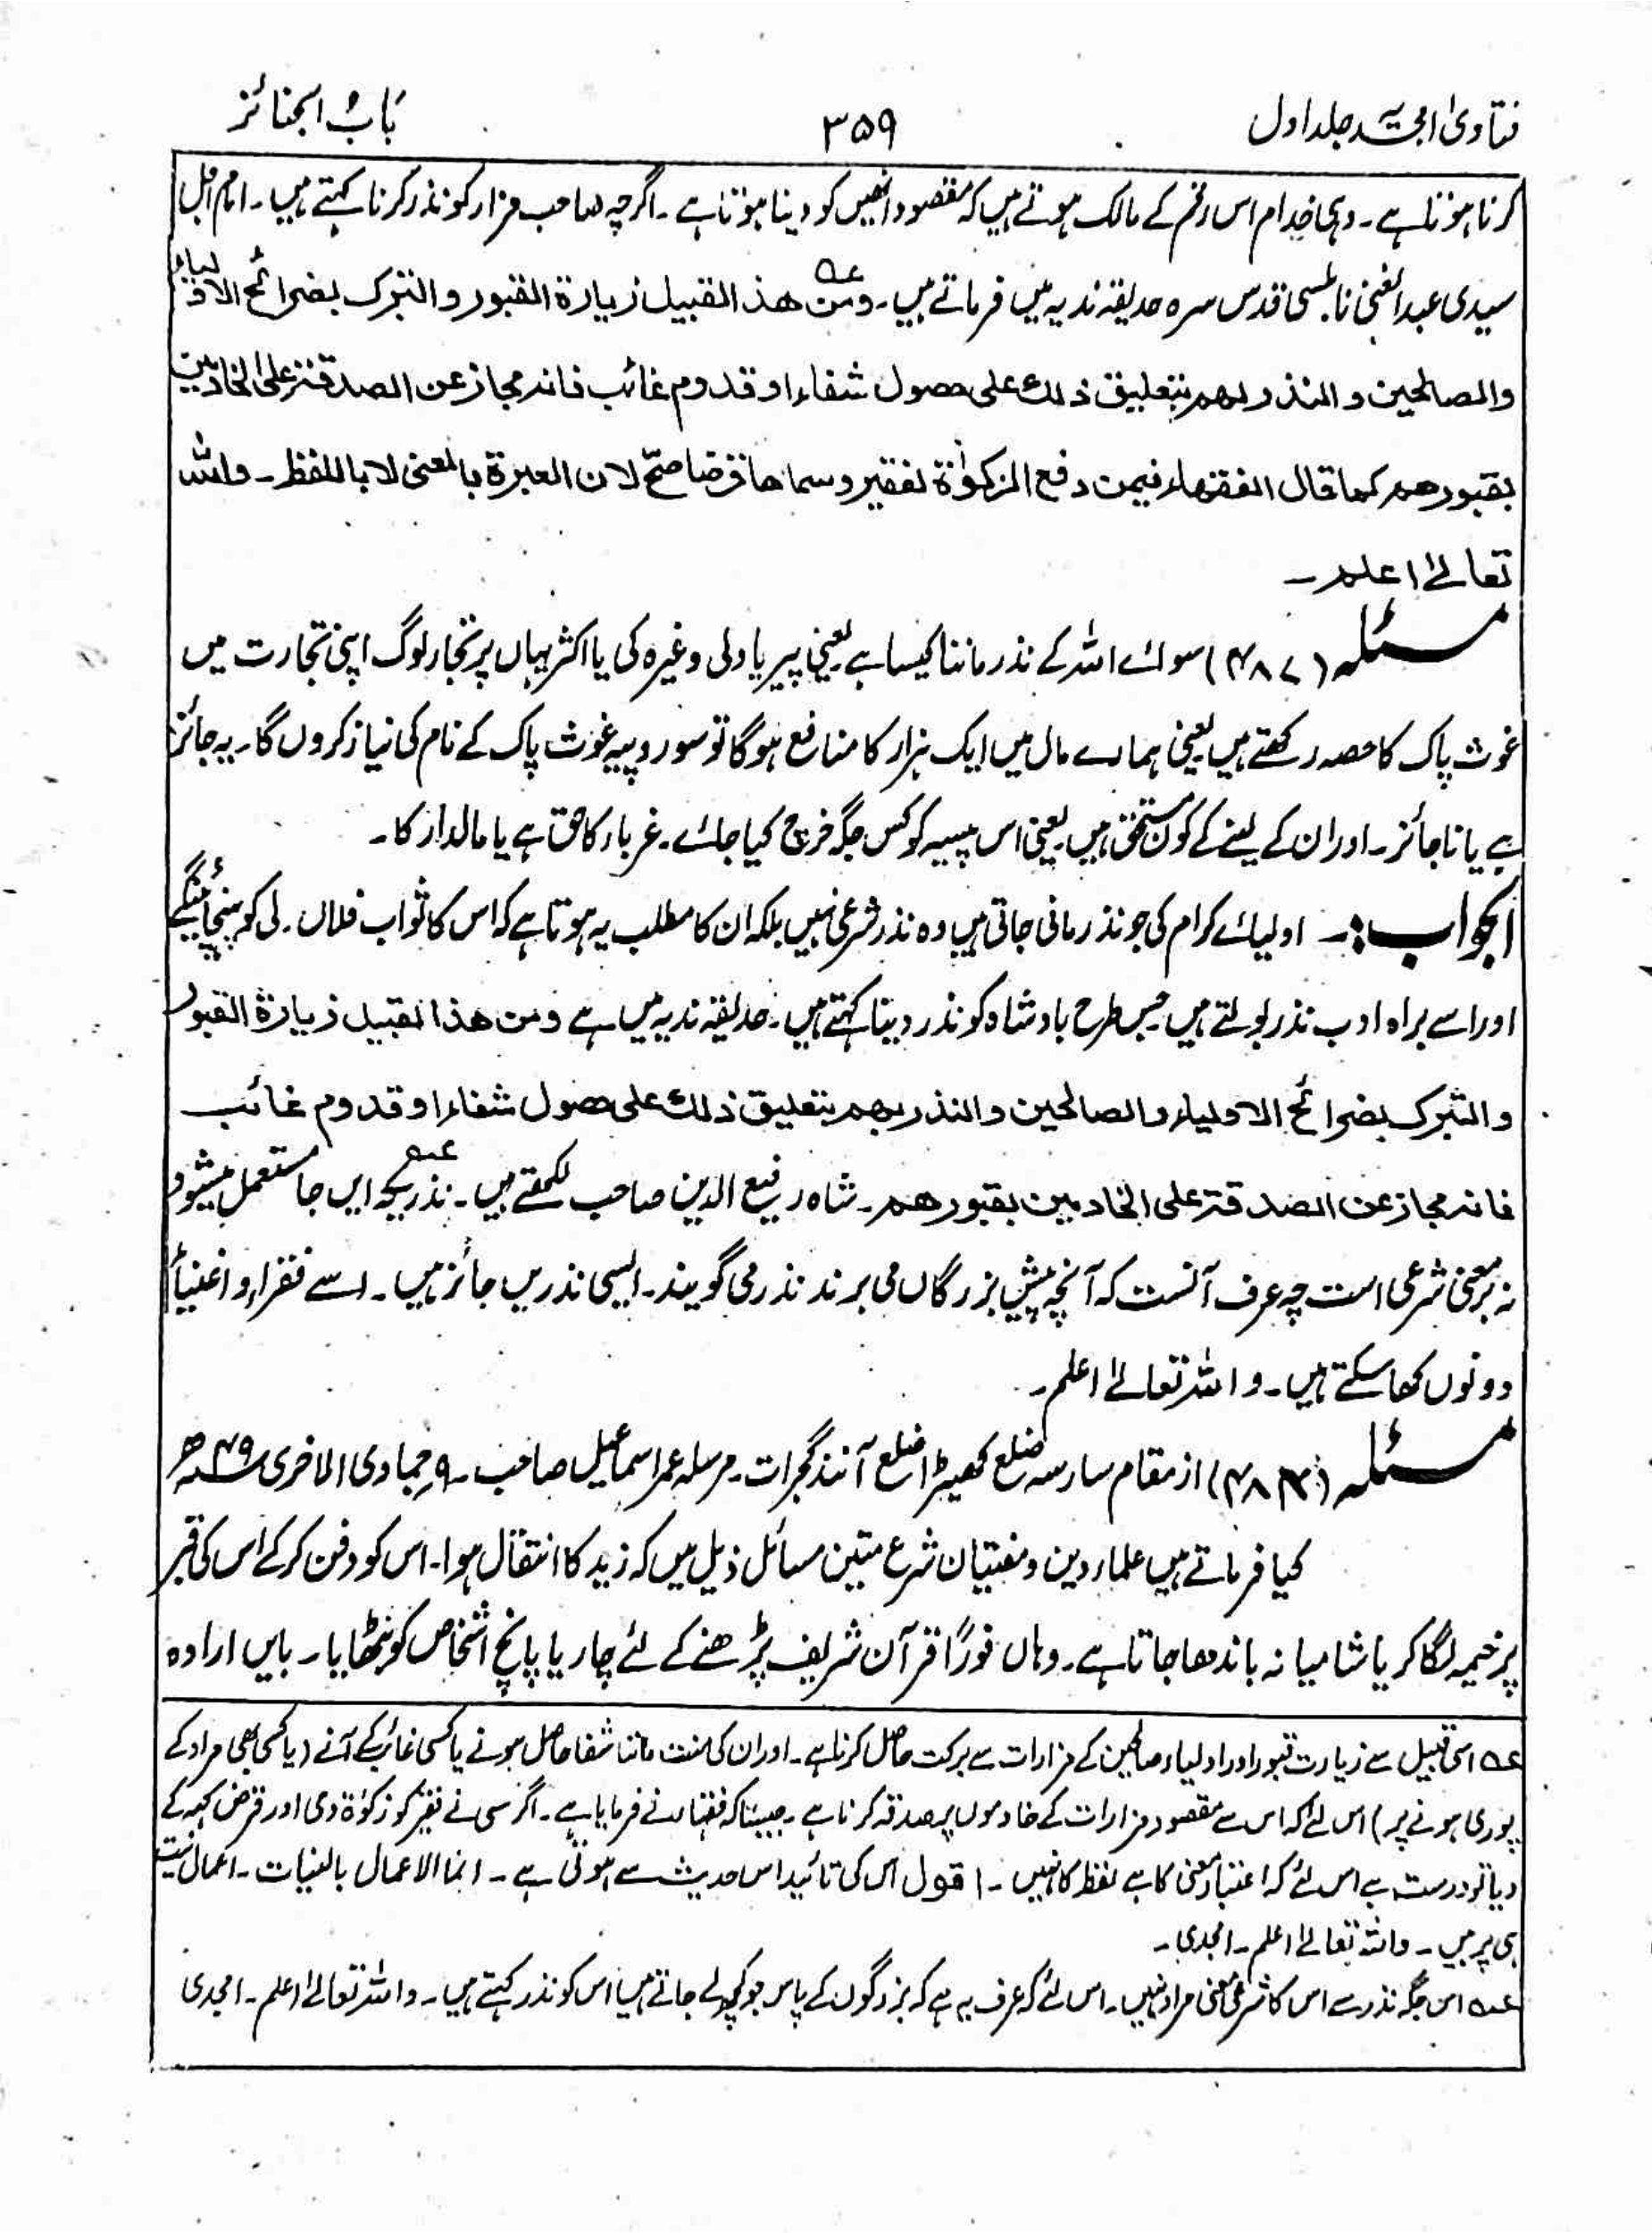 فتاویٰ امجدیہ جلد اول ۳۵۹ باب الجنائز
کرنا ہوتا ہے۔ وہی خدام اس رقم کے مالک ہوتے ہیں کہ مقصود انھیں کو دینا ہوتا ہے۔ اگرچہ صاحب مزار کو نذر کرنا کہتے ہیں۔ امام اجل
سیدی عبد الغنی نابلسی قدس سرہ حدیقہ ندیہ میں فرماتے ہیں۔ ومن عہ هذا القبیل زیارۃ القبور والتبرک بضرائح الاولیاء
والصالحین والنذر لهم بتعلیق ذلك علی حصول شفاء او قدوم غائب فانه مجاز عن الصدقة علی الخادمین
بقبورهم کما قال الفقهاء فیمن دفع الزکوٰۃ لفقیر وسماها قرضا صحّ لان العبرۃ بالمعنی لا باللفظ۔ واللہ
تعالےٰ اعلم۔
مسئلہ (۴۸۷) سوائے اللہ کے نذر ماننا کیسا ہے یعنی پیر یا ولی وغیرہ کی یا اکثر یہاں پر تجار لوگ اپنی تجارت میں
غوث پاک کا حصہ رکھتے ہیں یعنی ہمارے مال میں ایک ہزار کا منافع ہوگا تو سو روپیہ غوث پاک کے نام کی نیاز کروں گا۔ یہ جائز
ہے یا ناجائز۔ اور ان کے لینے کے کون مستحق ہیں یعنی اس پیسہ کو کس جگہ خرچ کیا جائے۔ غرباء کا حق ہے یا مالدار کا۔
الجواب:۔ اولیائے کرام کی جو نذر مانی جاتی ہیں وہ نذر شرعی نہیں بلکہ ان کا مطلب یہ ہوتا ہے کہ اس کا ثواب فلاں ولی کو پہنچائینگے
اور اسے براہ ادب نذر بولتے ہیں جس طرح بادشاہ کو نذر دینا کہتے ہیں۔ حدیقہ ندیہ میں ہے ومن هذا القبیل زیارۃ القبور
والتبرک بضرائح الاولیاء والصالحین والنذر لهم بتعلیق ذلك علی حصول شفاء او قدوم غائب
فانه مجاز عن الصدقة علی الخادمین بقبورهم۔ شاہ رفیع الدین صاحب لکھتے ہیں۔ نذریکہ عہ ایں جا مستعمل میشود
نہ بر معنی شرعی است چہ عرف آنست کہ آنچہ پیش بزرگاں می برند نذر می گویند۔ ایسی نذریں جائز ہیں۔ اسے فقراء و اغنیاء
دونوں کھا سکتے ہیں۔ واللہ تعالےٰ اعلم۔
مسئلہ ( ) از مقام سارسہ ضلع کھیڑا ضلع آنند گجرات۔ مرسلہ عمر اسماعیل صاحب۔ ۹ جمادی الاخری ۴۹ھ
کیا فرماتے ہیں علماء دین و مفتیان شرع متین مسائل ذیل میں کہ زید کا انتقال ہوا۔ اس کو دفن کر کے اس کی قبر
پر خیمہ لگا کر یا شامیانہ باندھا جاتا ہے۔ وہاں فوراً قرآن شریف پڑھنے کے لئے چار یا پانچ اشخاص کو بٹھایا۔ بایں ارادہ
عہ اسی قبیل سے زیارت قبور اور اولیاء و صالحین کے مزارات سے برکت حاصل کرنا ہے۔ اور ان کی منت ماننا شفا حاصل ہونے یا کسی غائب کے آنے (یا کسی بھی مراد کے
پوری ہونے پر) اس لئے کہ اس سے مقصود مزارات کے خادموں پر صدقہ کرنا ہے۔ جیسا کہ فقہاء نے فرمایا ہے۔ اگر کسی نے فقیر کو زکوٰۃ دی اور قرض کہہ کے
دیا تو درست ہے اس لئے کہ اعتبار معنی کا ہے لفظ کا نہیں۔ اقول اس کی تائید اس حدیث سے ہوتی ہے۔ انما الاعمال بالنیات۔ اعمال نیت
ہی پر ہیں۔ واللہ تعالےٰ اعلم۔ امجدی۔
عہ اس جگہ نذر سے اس کا شرعی معنی مراد نہیں۔ اس لئے کہ عرف یہ ہے کہ بزرگوں کے پاس جو کچھ لے جاتے ہیں اس کو نذر کہتے ہیں۔ واللہ تعالےٰ اعلم۔ امجدی